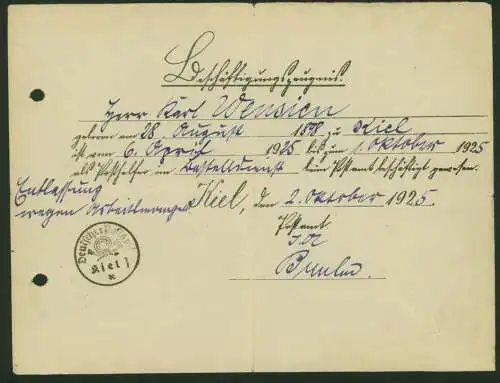 Beschäftigungszeugnis.
Herr Karl Wensien
geboren am 28. August 1898 zu Kiel
ist vom 6. April 1925 bis zum 1. Oktober 1925
als Posthelfer im Bestelldienst beim Postamt beschäftigt gewesen.
Entlassung
wegen Arbeitsmangel.
Kiel, den 2. Oktober 1925.
Postamt
I A
Deutsche
Kiel 1